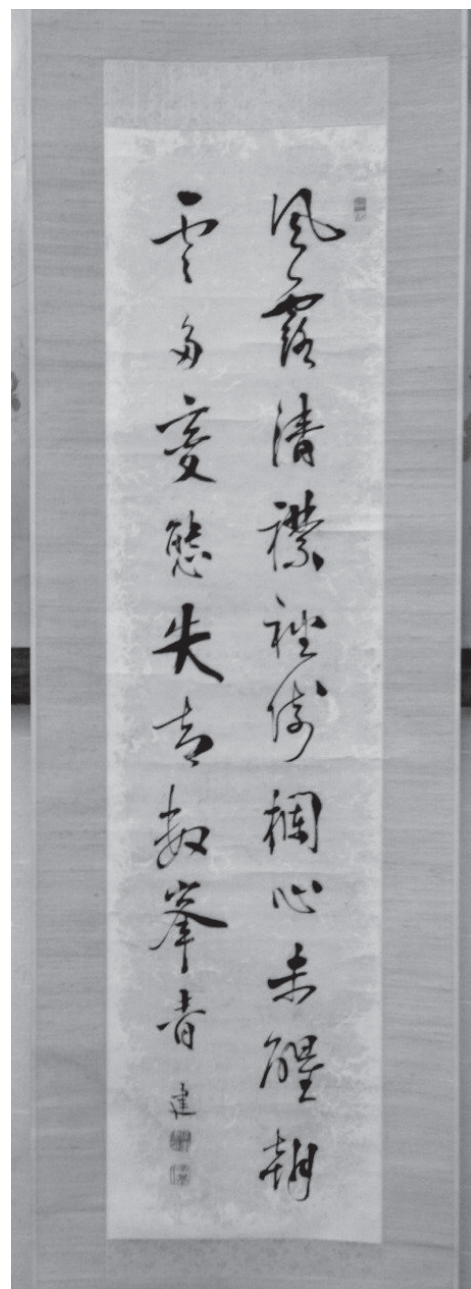 風露清襟裡倚欄心未醒朝
雲多変態失去数峯青
建